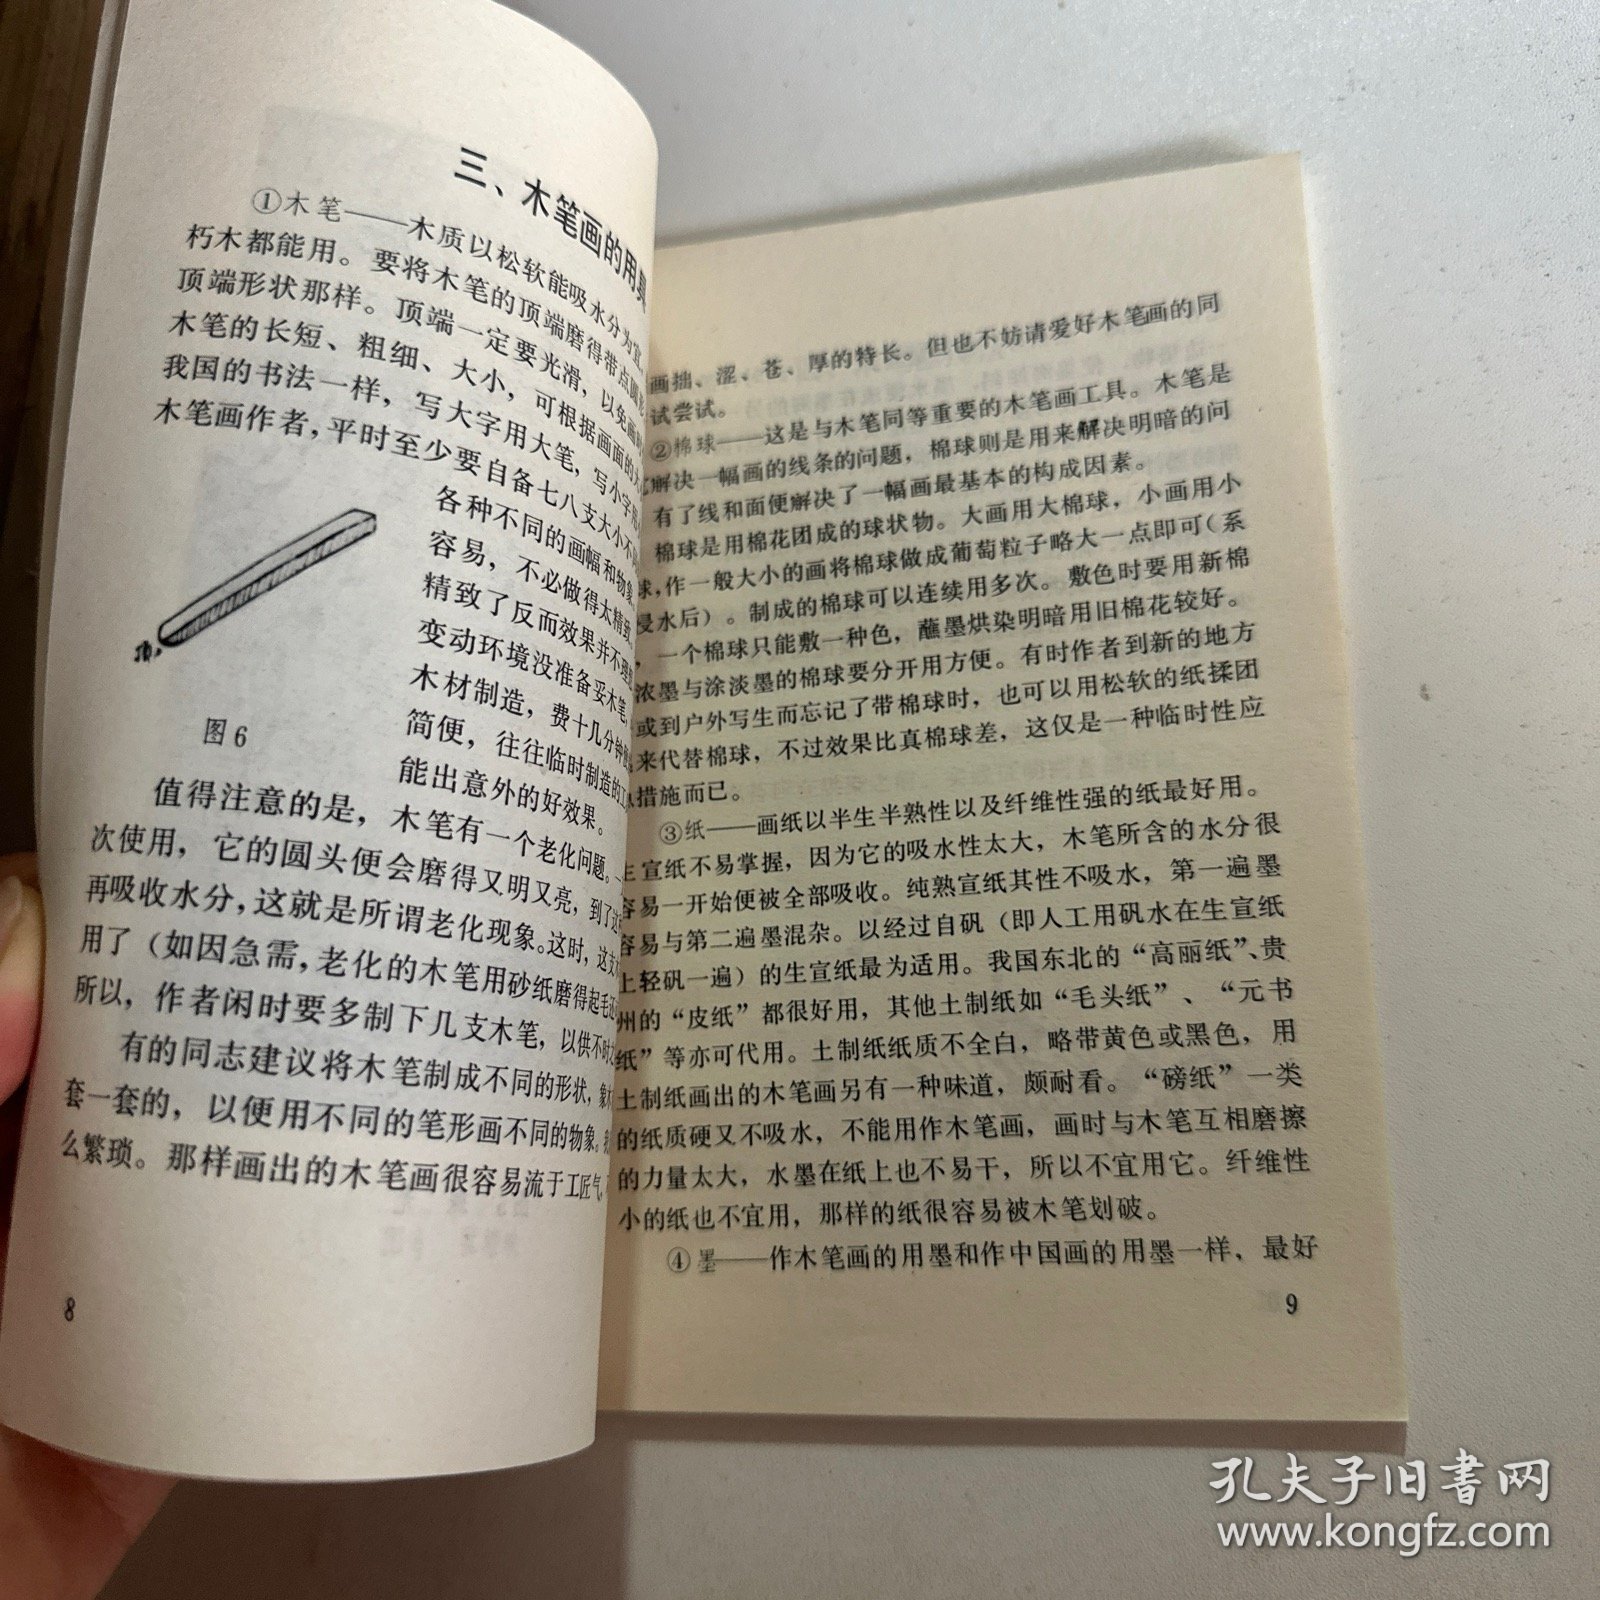 三、木笔画的用具
①木笔——木质以松软能吸水分为宜。
朽木都能用。要将木笔的顶端磨得带点圆形
顶端形状那样。顶端一定要光滑，以免画时
木笔的长短、粗细、大小，可根据画面的大
我国的书法一样，写大字用大笔，写小字用
木笔画作者，平时至少要自备七八支大小不同
各种不同的画幅和物象。
容易，不必做得太精致。
精致了反而效果并不理
变动环境没准备妥木笔，
木材制造，费十几分钟便
简便，往往临时制造的工
能出意外的好效果。
顶。
图6
值得注意的是，木笔有一个老化问题。一
次使用，它的圆头便会磨得又明又亮，到了这
再吸收水分，这就是所谓老化现象。这时，这支
用了（如因急需，老化的木笔用砂纸磨得起毛还
所以，作者闲时要多制下几支木笔，以供不时之
有的同志建议将木笔制成不同的形状，象木
套一套的，以便用不同的笔形画不同的物象。
么繁琐。那样画出的木笔画很容易流于工匠气，
8
画拙、涩、苍、厚的特长。但也不妨请爱好木笔画的同
试尝试。
②棉球——这是与木笔同等重要的木笔画工具。木笔是
解决一幅画的线条的问题，棉球则是用来解决明暗的问
有了线和面便解决了一幅画最基本的构成因素。
棉球是用棉花团成的球状物。大画用大棉球，小画用小
球，作一般大小的画将棉球做成葡萄粒子略大一点即可（系
浸水后）。制成的棉球可以连续用多次。敷色时要用新棉
，一个棉球只能敷一种色，蘸墨烘染明暗用旧棉花较好。
浓墨与涂淡墨的棉球要分开用方便。有时作者到新的地方
或到户外写生而忘记了带棉球时，也可以用松软的纸揉团
来代替棉球，不过效果比真棉球差，这仅是一种临时性应
措施而已。
③纸——画纸以半生半熟性以及纤维性强的纸最好用。
生宣纸不易掌握，因为它的吸水性太大，木笔所含的水分很
容易一开始便被全部吸收。纯熟宣纸其性不吸水，第一遍墨
容易与第二遍墨混杂。以经过自矾（即人工用矾水在生宣纸
上轻矾一遍）的生宣纸最为适用。我国东北的“高丽纸”、贵
州的“皮纸”都很好用，其他土制纸如“毛头纸”、“元书
纸”等亦可代用。土制纸纸质不全白，略带黄色或黑色，用
土制纸画出的木笔画另有一种味道，颇耐看。“磅纸”一类
的纸质硬又不吸水，不能用作木笔画，画时与木笔互相磨擦
的力量太大，水墨在纸上也不易干，所以不宜用它。纤维性
小的纸也不宜用，那样的纸很容易被木笔划破。
④墨——作木笔画的用墨和作中国画的用墨一样，最好
9
孔夫子旧书网
www.kongfz.com